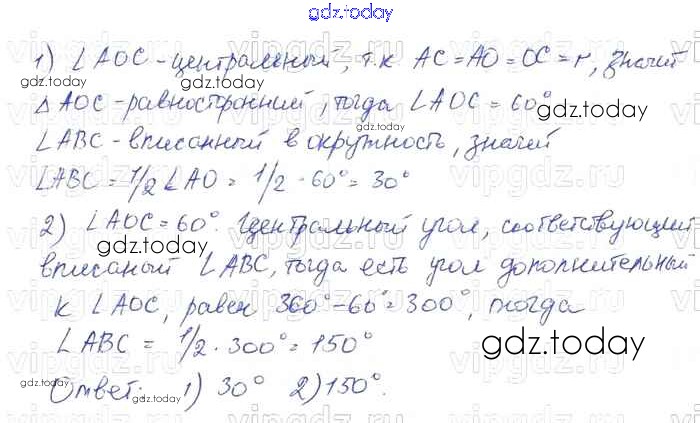 gdz.today
1) ∠AOC - центральный, т.к AC = AO = OC = r, значит
gdz.today
△ AOC - равносторонний, тогда ∠AOC = 60°
gdz.today
gdz.today
∠ABC - вписанный в окружность, значит
gdz.today
∠ABC = 1/2 ∠AO = 1/2 · 60° = 30°
2) ∠AOC = 60°. Центральный угол, соответствующий
gdz.today
вписаный ∠ABC, тогда есть угол дополнительный
к ∠AOC, равен 360° - 60° = 300°, тогда
gdz.today
∠ABC = 1/2 · 300° = 150°
gdz.today
gdz.today
Ответ: 1) 30° 2) 150°.